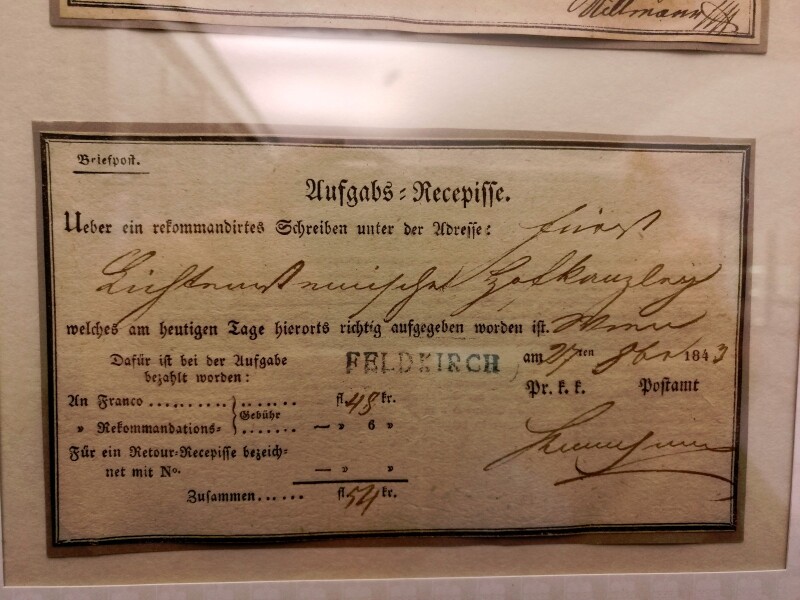 Millmann
Briefpost.
Aufgabs-Recepisse.
Ueber ein rekommandirtes Schreiben unter der Adresse: Fürst
Lichtensteinische Hofkanzley
welches am heutigen Tage hierorts richtig aufgegeben worden ist. Wien
Dafür ist bei der Aufgabe FELDKIRCH am 27ten 8ber 1843
bezahlt worden: Pr. k. k. Postamt
An Franco ......... } ...... fl. 48 kr.
Gebühr
„ Rekommandations- } ...... — „ 6 „
Für ein Retour-Recepisse bezeich-
net mit No. — „ „
Zusammen...... fl. 54 kr.